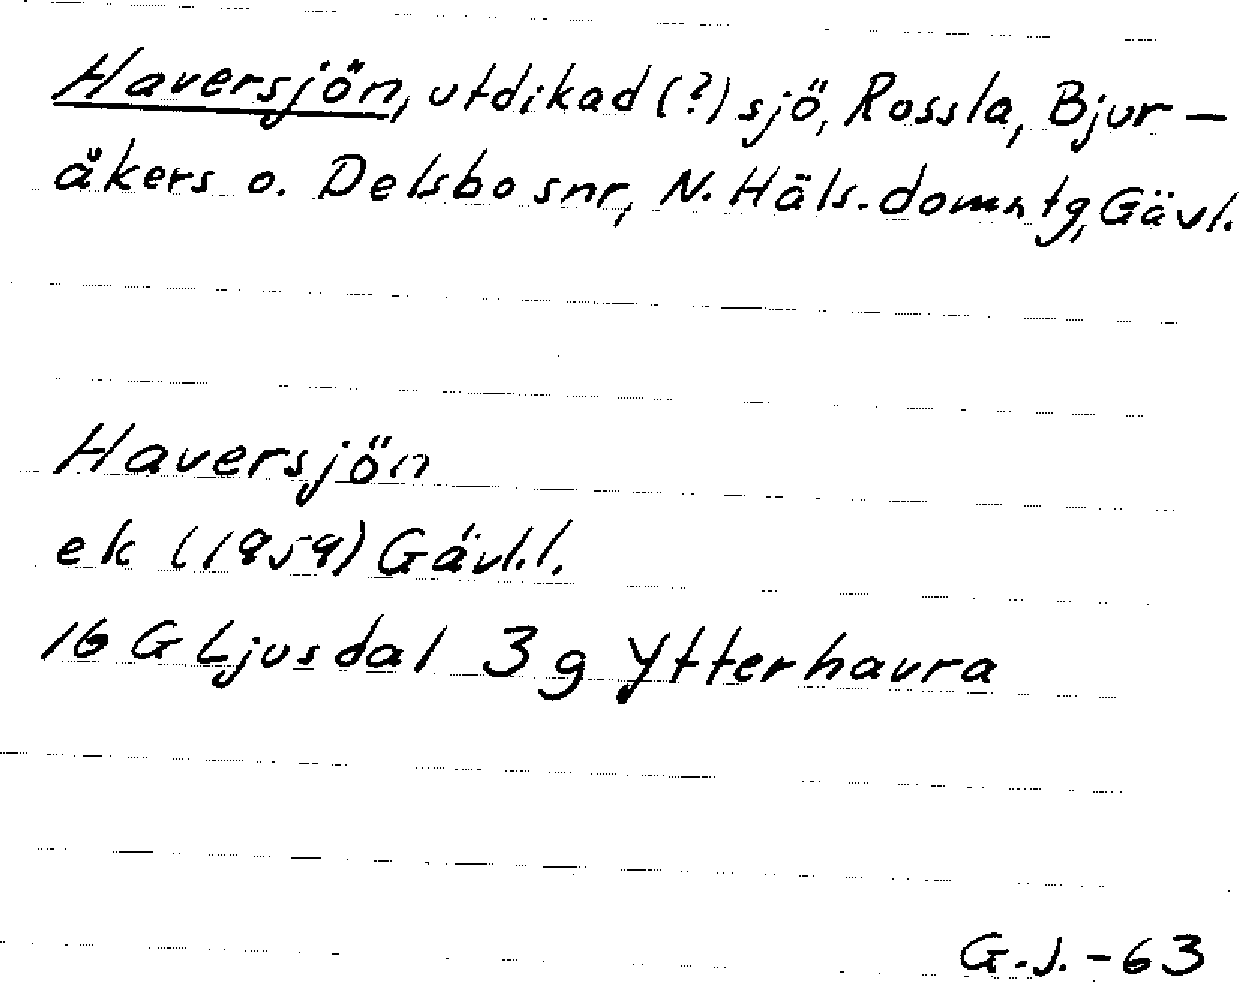 Haversjön, utdikad (?) sjö, Rossla, Bjur-
åkers o. Delsbo snr, N. Häls. domsntg, Gävl.
Haversjön
ek (1959) Gävl.l.
16 G Ljusdal 3g Ytterhavra
G.J.-63